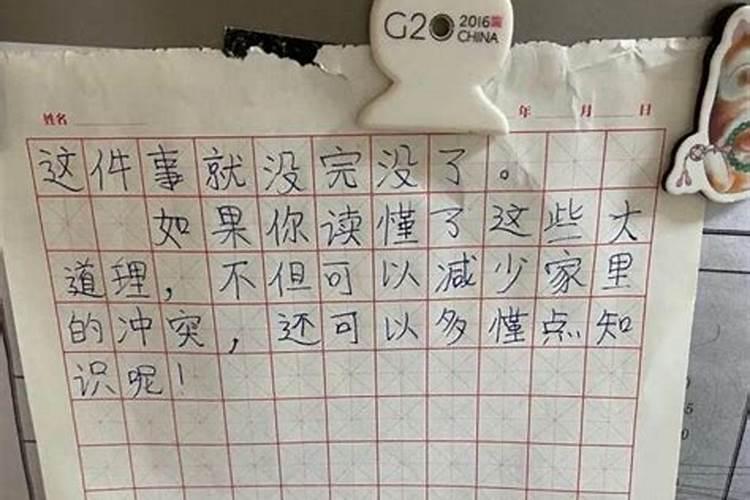 G20 2016 CHINA
姓名 年 月 日
这件事就没完没了。
如果你读懂了这些大
道理，不但可以减少家里
的冲突，还可以多懂点知
识呢！